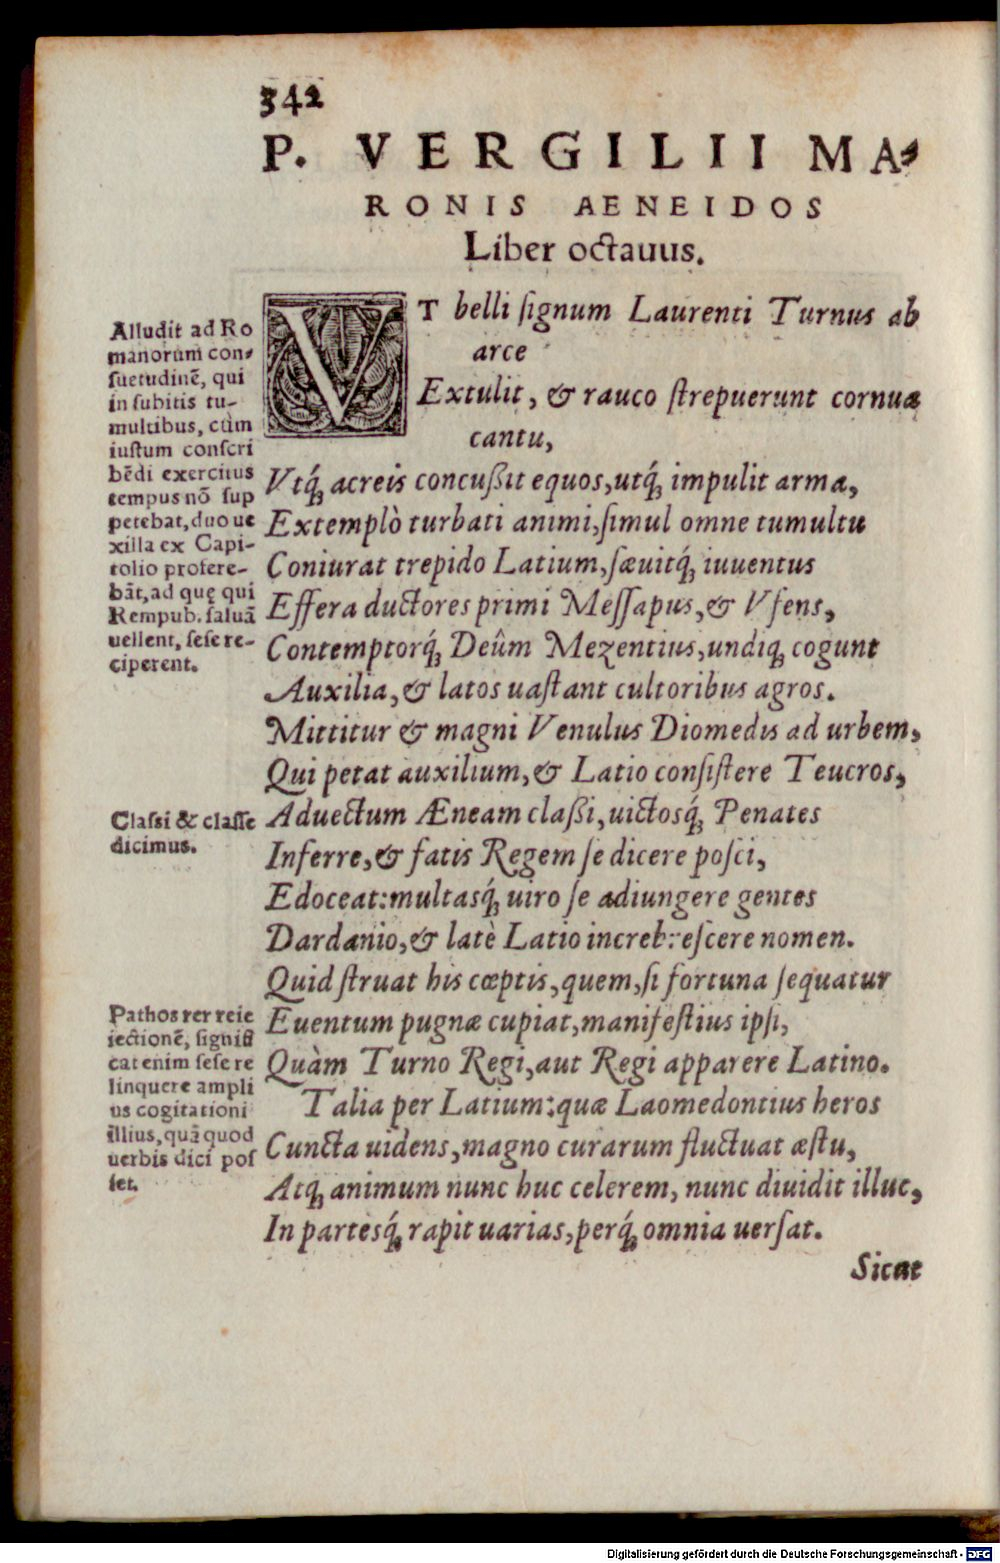 342
P. VERGILII MA-
RONIS AENEIDOS
Liber octauus.
VT belli signum Laurenti Turnus ab
arce
Extulit, & rauco strepuerunt cornua
cantu,
Vtq́; acreis concußit equos, utq́; impulit arma,
Extemplò turbati animi, simul omne tumultu
Coniurat trepido Latium, sæuitq́; iuuentus
Effera ductores primi Messapus, & Vfens,
Contemptorq́; Deûm Mezentius, undiq; cogunt
Auxilia, & latos uastant cultoribus agros.
Mittitur & magni Venulus Diomedis ad urbem,
Qui petat auxilium, & Latio consistere Teucros,
Aduectum Æneam claßi, uictosq́; Penates
Inferre, & fatis Regem se dicere posci,
Edoceat: multasq́; uiro se adiungere gentes
Dardanio, & latè Latio increbrescere nomen.
Quid struat his cœptis, quem, si fortuna sequatur
Euentum pugnæ cupiat, manifestius ipsi,
Quàm Turno Regi, aut Regi apparere Latino.
Talia per Latium: quæ Laomedontius heros
Cuncta uidens, magno curarum fluctuat æstu,
Atq; animum nunc huc celerem, nunc diuidit illuc,
In partesq́; rapit uarias, perq́; omnia uersat.
Sicut
Alludit ad Ro
manorum con-
suetudinē, qui
in subitis tu-
multibus, cùm
iustum conscri
bēdi exercitus
tempus nō sup
petebat, duo ue
xilla ex Capi-
tolio profere-
bāt, ad quę qui
Rempub. saluā
uellent, sese re-
ciperent.
Classi & classe
dicimus.
Pathos rer reie
iectionē, signifi
cat enim sese re
linquere ampli
us cogitationi
illius, quā quod
uerbis dici pos
set.
Digitalisierung gefördert durch die Deutsche Forschungsgemeinschaft - DFG